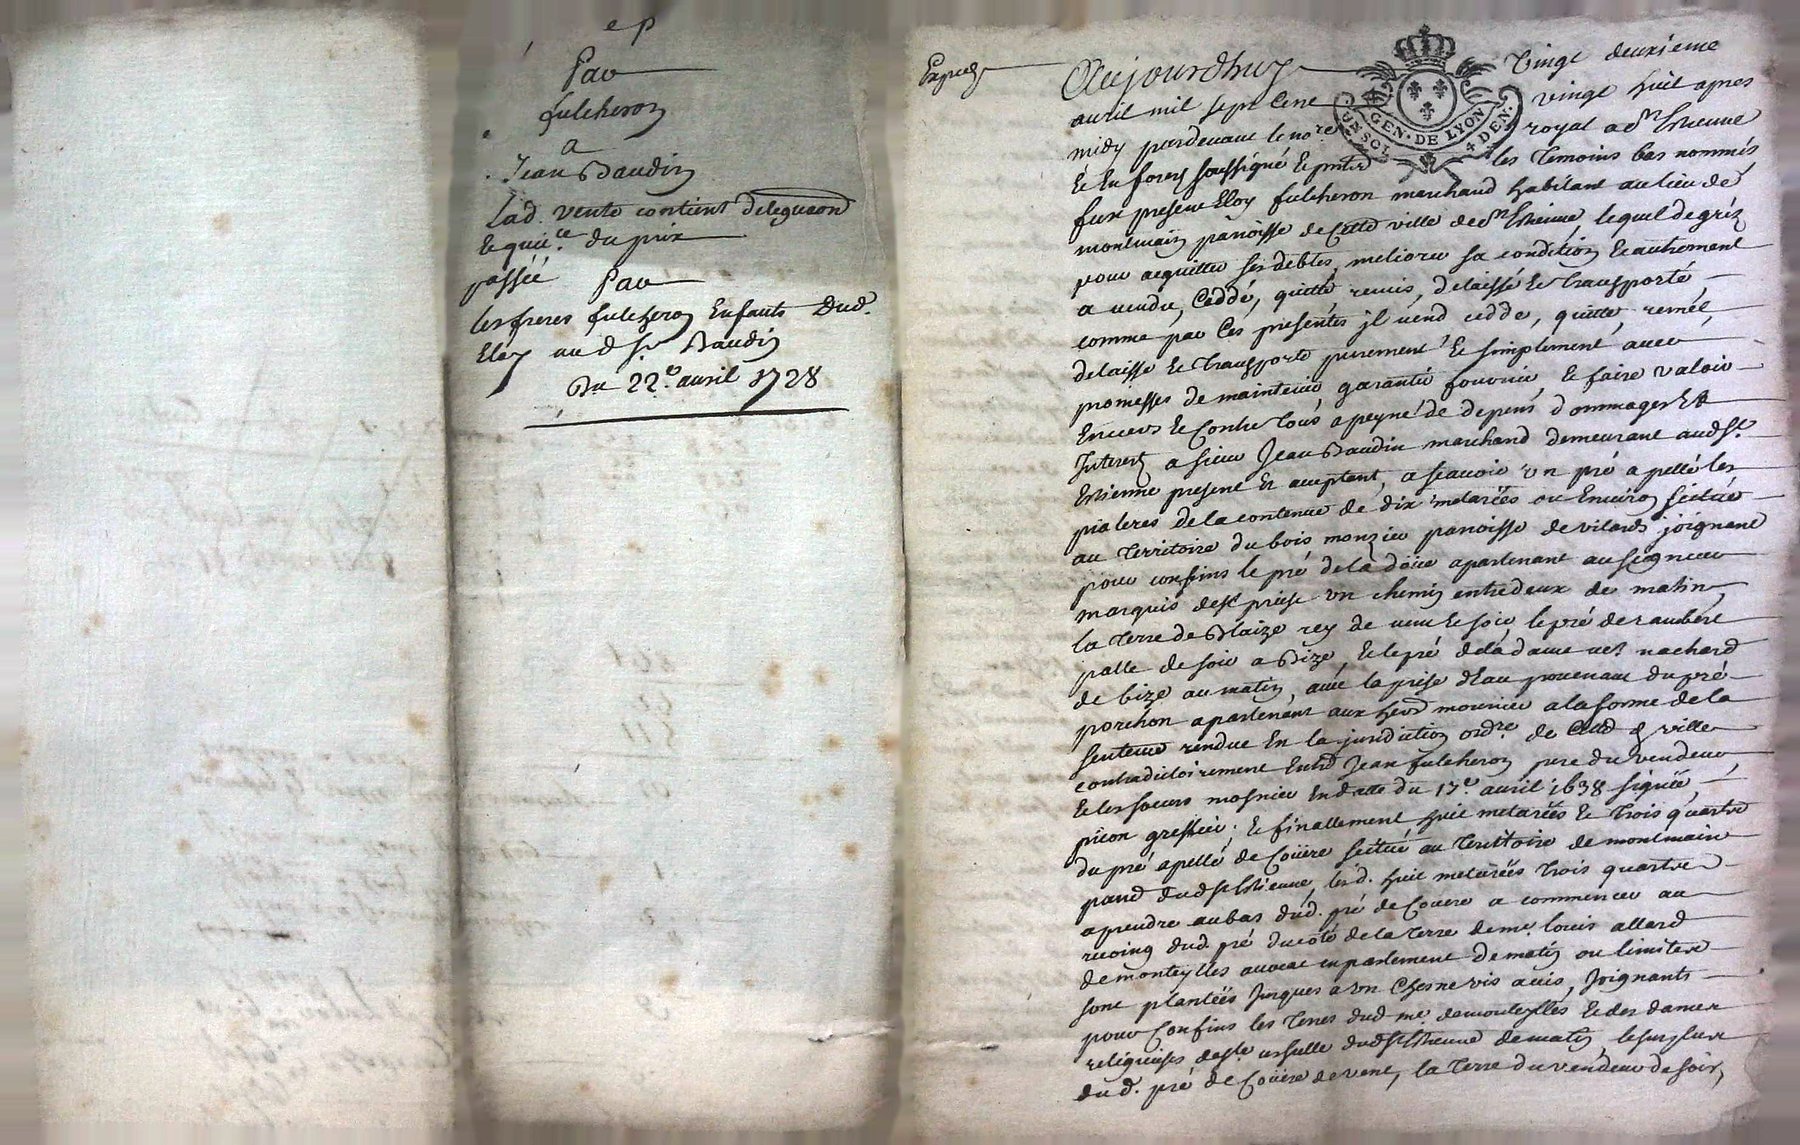 e p
Par
fulcheron
a
Jean Baudin
Lad. vente contient delegaon
et quice. du prix
passée Par
les freres fulcheron Enfants Dud.
Eloy aud Sr. Baudin
Du 22e. avril 1728
Expied
Aujourdhuy vingt deuxieme
avril mil sept Cent vingt huit apres
midy pardevant le nore. royal a St Etienne
et En forey soussigné et pntes les temoins bas nommés
GEN. DE LYON
4 DEN.
fut present Eloy fulcheron marchand habitant au lieu de
montmain paroisse de Cette ville de St Etienne lequel de gréz
pour acquitter ses debtes, meliorer sa condition et autrement
a vendu, Ceddé, quitté remis, delaissé et transporté
comme par Ces presentes jl vend cedde, quitte remet,
delaisse et transporte purement et simplement avec
promesses de maintenir garantir fournir et faire valoir
Envers et Contre tous a peyne de depens dommages et
Interets a sieur Jean Baudin marchand demeurant aud St.
Etienne present et acceptant, a scavoir un pré apellé les
pialeres de la contenue de dix metarées ou Environ scitué
au territoire du bois monzieu paroisse de vilards joignant
pour confins le pré de la doire apartenant au seigneur
marquis de St priest un chemin entredeux de matin,
la terre de Blaize rey de vent et soir le pré de rambert
palle de soir a bize, et le pré de la dame ve. nachard
de bize au matin, avec la prise d'Eau provenant du pré
porchon apartenant aux herd mournier a la forme de la
sentence rendue En la juridiction ordre. de Cette ville
contradictoirement Entre Jean fulcheron pere du vendeur
et les soeurs mosnier En datte du 17e. avril 1698 signée,
picon greffier. et finallement huit metarées et trois quartes
du pré apellé de Coüere scitué au territoire de montmain
parr. dud St Etienne, lesd. huit metarées trois quartes
a prendre au bas dud. pré de Couere a commencer au
recoing dud. pré du coté de la terre de me. louis allard
de monteylles avocat en parlement de matin ou limites
sont plantées jusques a un Chesne vis avis, joignants
pour Confins les terres dud me. demonteylles et des dames
religieuses de Ste ursulle dud St Etienne de matin le surplus
dud. pré de Coüere de vent, la terre du vendeur de soir,